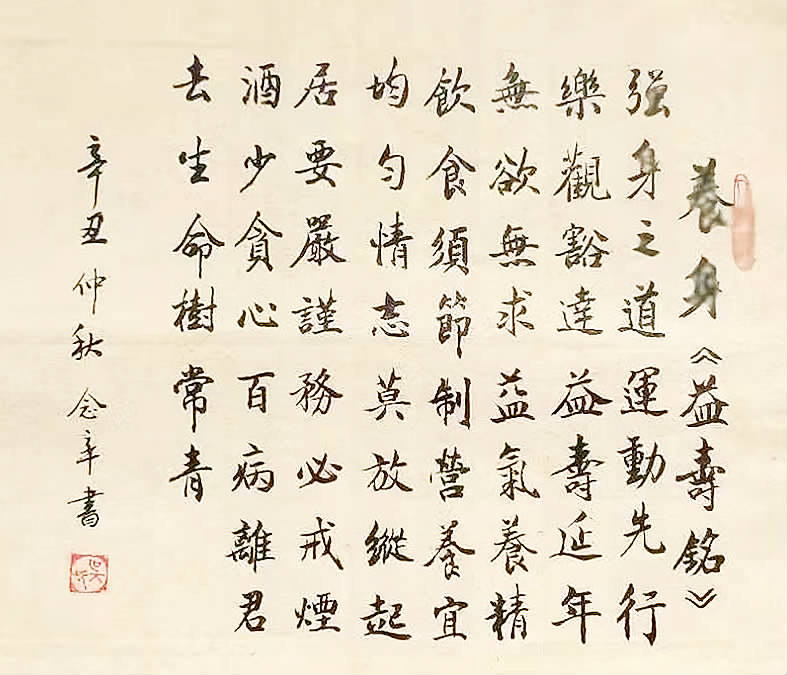 養身《益壽銘》
强身之道運動先行
樂觀豁達益壽延年
無欲無求益氣養精
飲食須節制營養宜
均勻情志莫放縱起
居要嚴謹務必戒煙
酒少貪心百病離君
去生命樹常青
辛丑仲秋念辛書